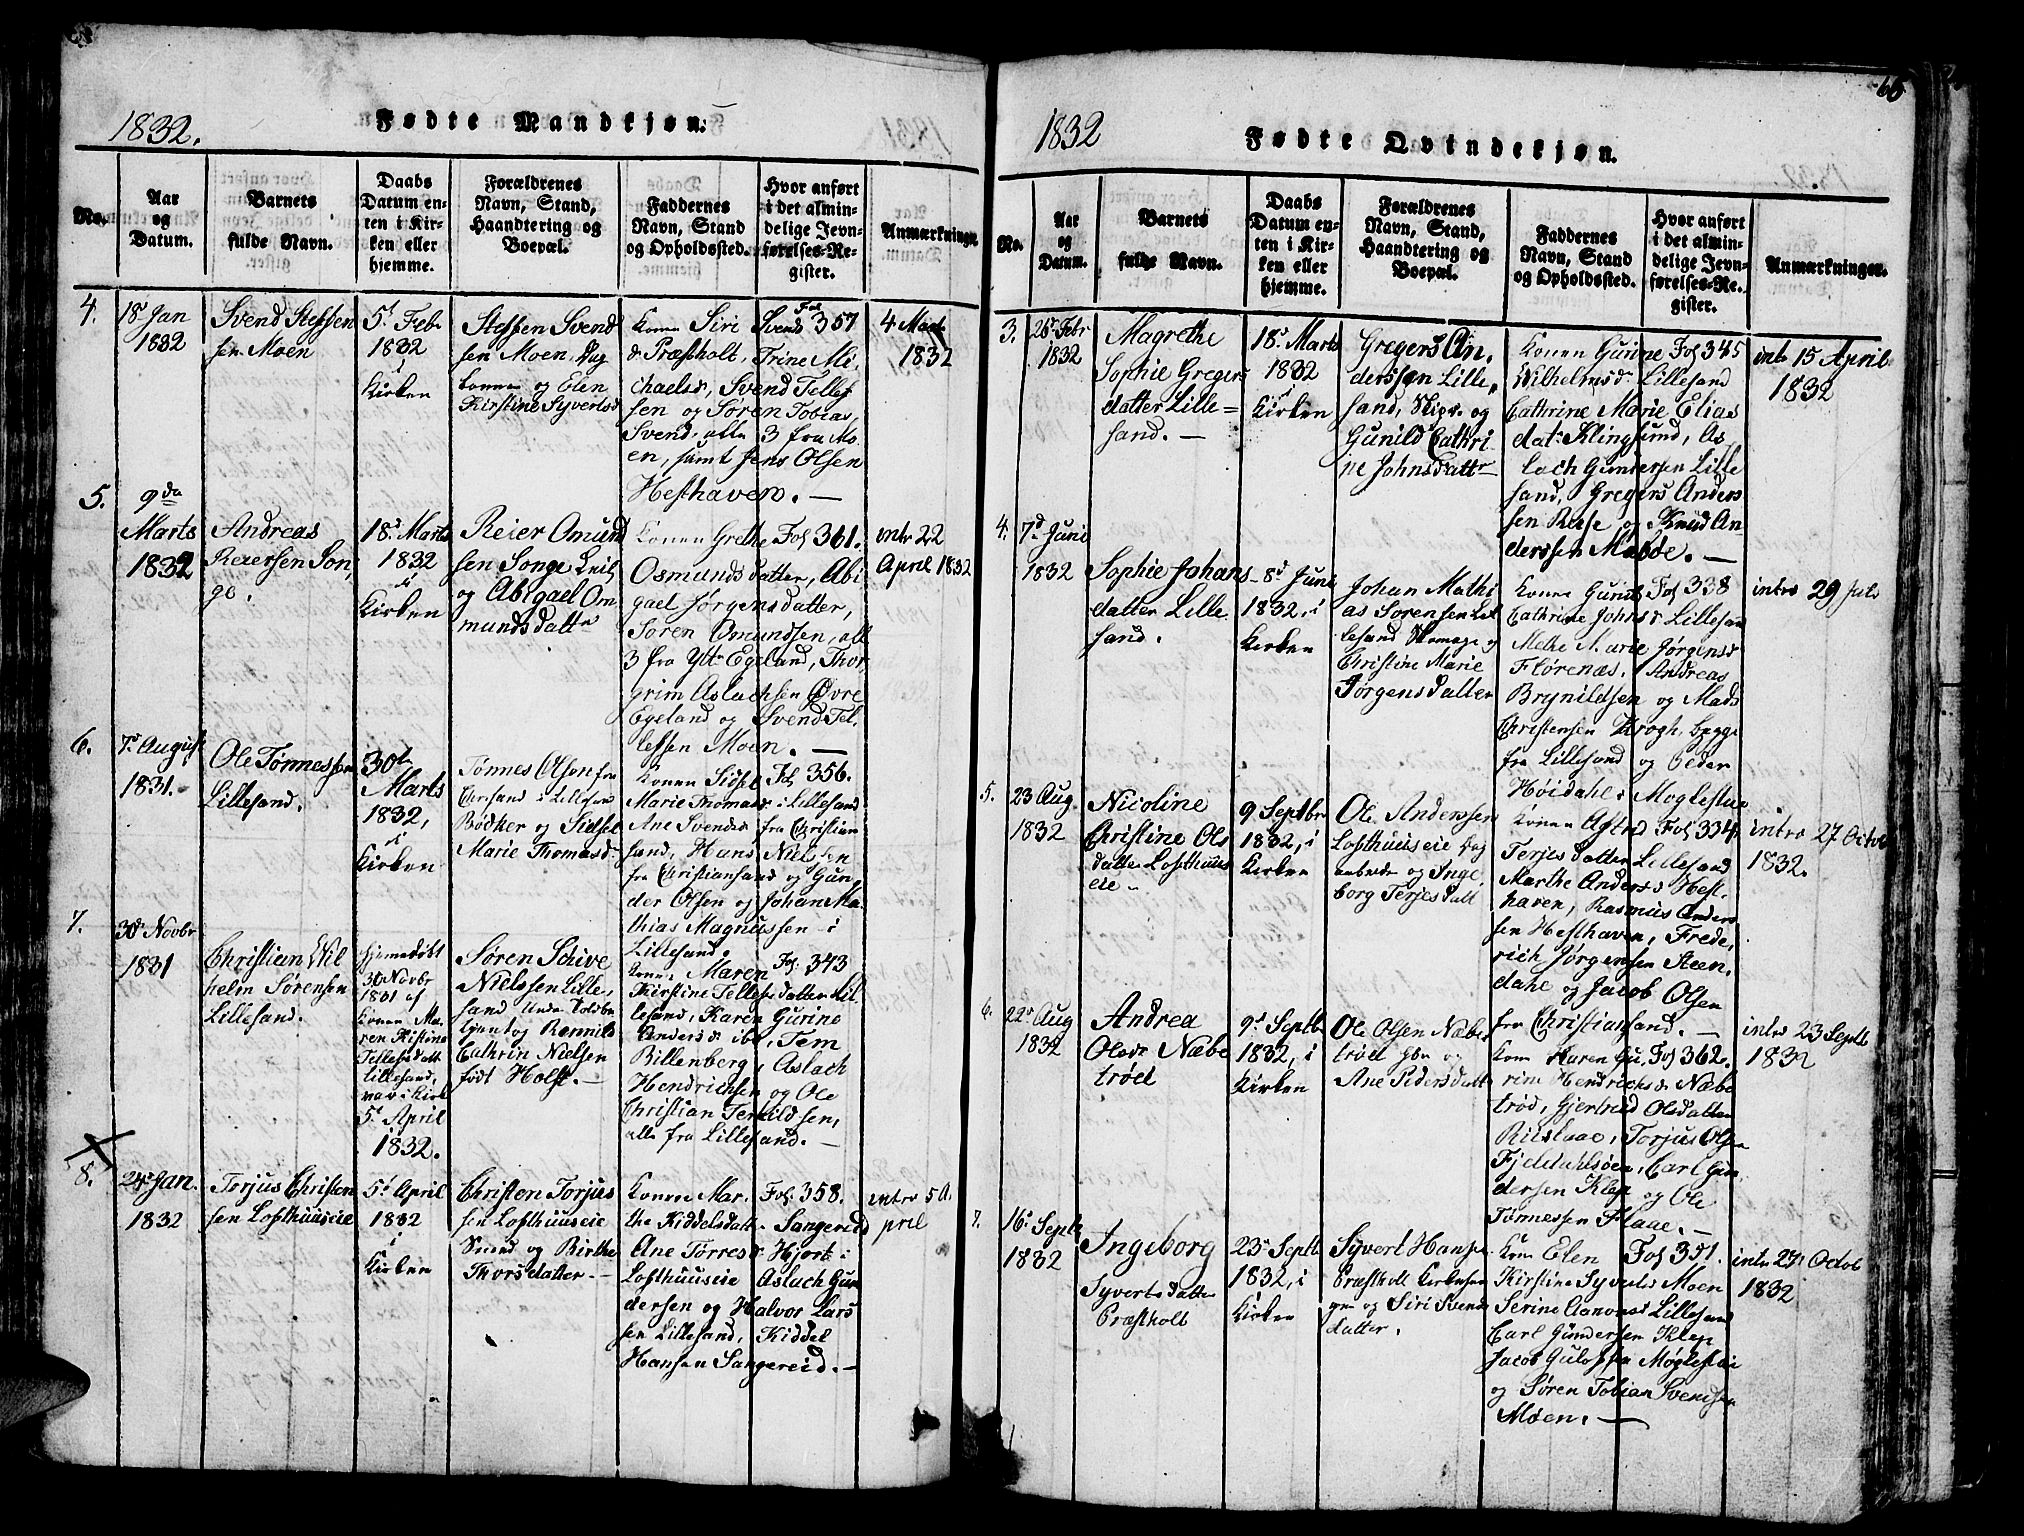 1832.
Fødte Mandkjøn.
No.
Aar
og
Datum.
Barnets
fulde Navn.
Daabs
Datum en-
ten i Kir-
ken eller
hjemme.
Forældrenes
Navn, Stand,
Haandtering og
Boepæl.
Faddernes
Navn, Stand
og Opholdssted.
Hvor anført
i det almin-
delige Jevn-
førelses-Re-
gister.
Anmærkninger.
4.
18de Jan
1832
Svend Steffen
sen Moen
5t Febr
1832
i
Kirken
Steffen Svend
sen Moen, Dag
og Elen
Kirstine Syvertsd
Konen Siri
Præstholt, Trine Mi,
chaelsd, Svend Tellef
sen og Søren Tobias,
Svend, alle 3 fra Mo
en, samt Jens Olsen
Hesthaven. —
Fol 357
4 Marts
1832
5.
9da
Marts
1832
Andreas
Reiersen Son,
ge.
18d Marts
1832
i
Kirken
Reier Omund
sen Songe
og Abigael Om
mundsdattr
Konen Grethe
Osmundsdatter, Abi
gael Jørgensdatter,
Søren Omundsen, alle
3 fra Ytr Egeland, Thor
grim Aslachsen Øvre
Egeland og Svend Tel,
lefsen Moen. —
Fol 361.
intr 22
April 1832
6.
7d August
1831.
Ole Tønnessen
Lillesand.
30te
Marts
1832,
i
Kirken
Tønnes Olsen fra
Chrsand i Lillesand
Bødker og Sidsel
Marie Thomasd.
Konen Sidsel
Marie Thomasd i Lillesand
Ane Svendsd fra Christian
sand, Hans Nielsen
fra Christiansand og Gun,
der Olsen og Johan Ma
thias Magnussen i
Lillesand.
Fol 356.
7.
30d Novbr
1831
Christian Wil
helm Sørensen
Lillesand.
hjemedøbt
30 Novbr
1831 af
Konen Ma,
ren Kistine
Tellefsdatt
Lillesand,
var i Kirk
5t April
1832.
Søren Schive
Nielssen Lille,
sand
og
Cathrin Nielsen
født Holst. —
Konen Maren
Kirstine Tellefsdatter Lil
lesand, Karen Gurine
Andersd ib., Tem
Billenberg, Aslach
Hendrichsen og Ole
Christian Temildsen,
alle fra Lillesand. —
Fol. 343
8.
24de Jan.
1832
Torjus Christen
sen Lofthuuseie
5t April
1832
i
Kirken
Christen Torjus
sen Lofthuuseie
og Birthe
Thorsdatter. —
Konen Mar,
the Kiddelsdatt Sangereid
Ane Torresd. Hjort i
Lofthuuseie Aslach Gun
dersen og Halvor Lars
sen Lillesand, Kiddel
Hansen Sangereid. —
Fol. 358.
intro 5 A,
pril
1832
Fødte Qvindekjøn.
65
No.
Aar
og
Datum.
Barnets
fulde Navn.
Daabs
Datum en-
ten i Kir-
ken eller
hjemme.
Forældrenes
Navn, Stand,
Haandtering og
Boepæl.
Faddernes
Navn, Stand
og Opholdssted.
Hvor anført
i det almin-
delige Jevn-
førelses-Re-
gister.
Anmærkninger.
3.
26d Febr
1832
Magrethe
Sophie Gregers
datter Lille=
sand. —
18d Marts
1832
i
Kirken
Gregers An,
derssen Lille,
sand, Skipr. og
Gunild Cathri
ne Johnsdattr
Konen Gurine
Wilhelmsd. Lillesand
Cathrine Marie Elias
datr Klingsund, As
lach Gundersen Lille
sand, Gregers Anders
sen Reise og Knud An
derssen Mæbøe. —
Fol 345
intr 15 April
1832
4.
7d Juni
1832
Sophie Johans
datter Lille
sand.
8d Juni
1832, i
Kirken
Johan Mathi
as Sørensen Lil
lesand Skomage og
Christine Marie
Jørgensdatter
Konen Gunild
Cathrine Johnsd Lillesan
Methe Marie Jørgensd
Florenæs, Andreas
Brynildsen og Mads
Christensen Krogh, begge
fra Lillesand og Peder
Høidahl i Moglestue
Fol 338
intro 29 Juli
5.
23 Aug.
1832
Nicoline
Christine Ols
datter Lofthuus
eie
9 Septbr
1832, i
Kirken
Ole Anderssen
Lofthuuseie Dag
arbeide og Inge
borg Terjesdatt
Konen Astrid
Terjesdatter Lillesand
Marthe Andersd Hest,
haven, Rasmus Anders
sen Hesthaven, Frede
rich Jørgensen Steen,
dahl og Jacob Olsen
fra Christiansand. —
Fol 334
intro 27 Octob
1832.
6.
22d Aug
1832
Andrea
Olsdr Næbe
trød
9d Septb
1832, i
Kirken
Ole Olsen Næbe
trød Gbr og
Ane Pedersdatt
Kone Karen Gu,
rine Hendrichsd Næbe
trød, Gjertrud Olsdatter
Torjus Olsen
Fjeldahlsøen, Carl Gun
dersen Klep og Ole
Tønnessen Flaae. —
Fol 362.
intro 23 Septb
1832
7.
16d Septb
1832
Ingeborg
Syvertsdatter
Præstholt
23d Septb
1832, i
Kirken
Syvert Hanse
Præstholt Kirkesan
ger og Siri Svends
datter.
Kone Elen
Kirstine Syverts Moen
Serine Aanonsd Lillesand
Carl Gundersen Klep
Jacob Møglestue
og Søren Tobias Svendsen
Moen. —
Fol 351.
intro 27 Octob
1832